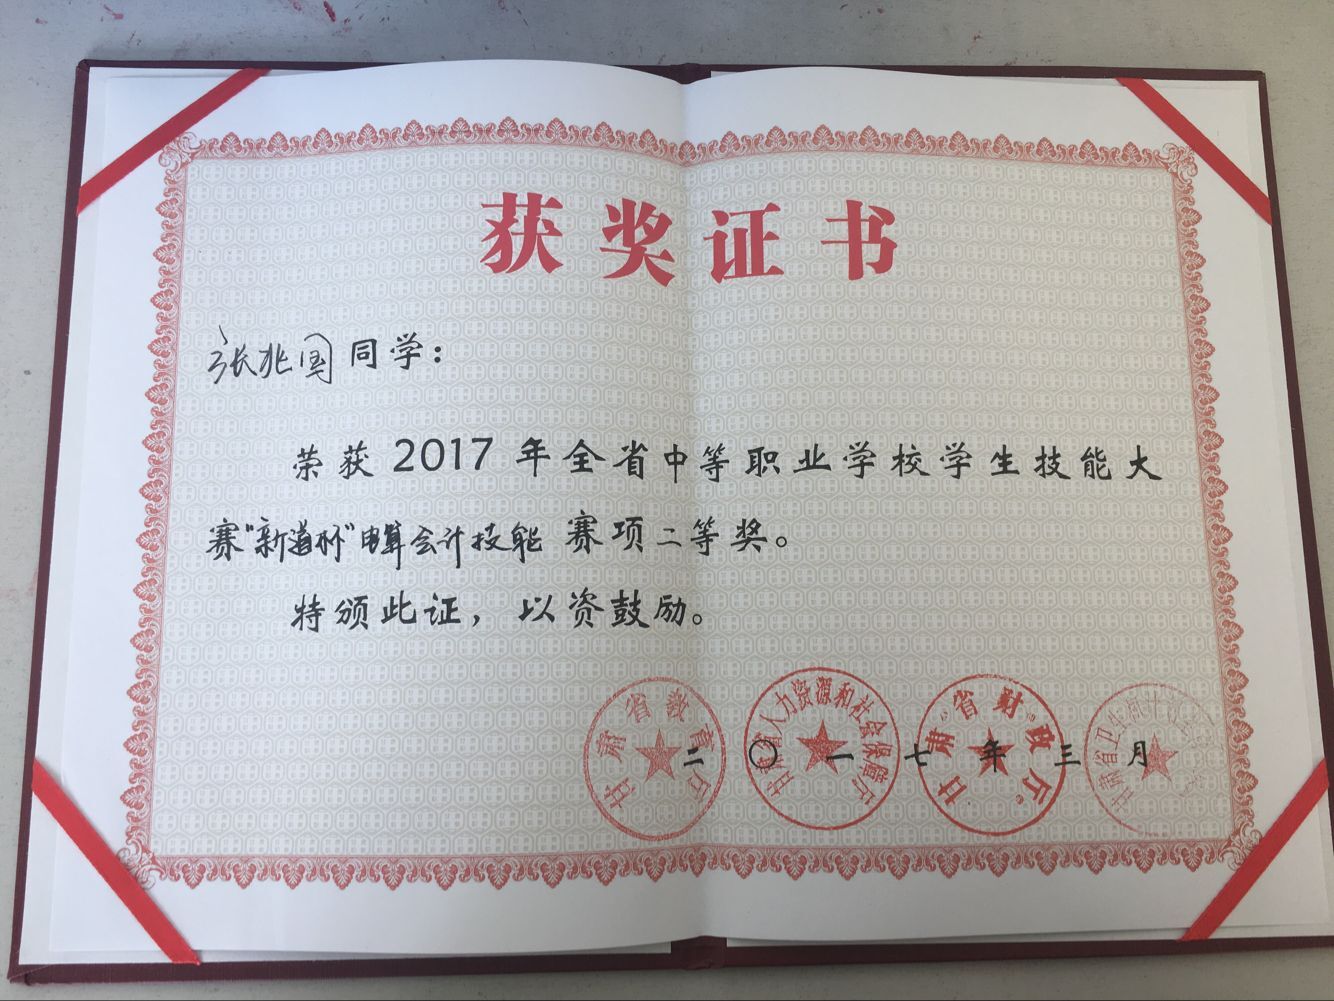 获奖证书
张兆国同学：
荣获2017年全省中等职业学校学生技能大
赛“新道杯”电算会计技能 赛项二等奖。
特颁此证，以资鼓励。
甘肃省教育厅
甘肃省人力资源和社会保障厅
甘肃省财政厅
甘肃省卫生
二〇一七年三月